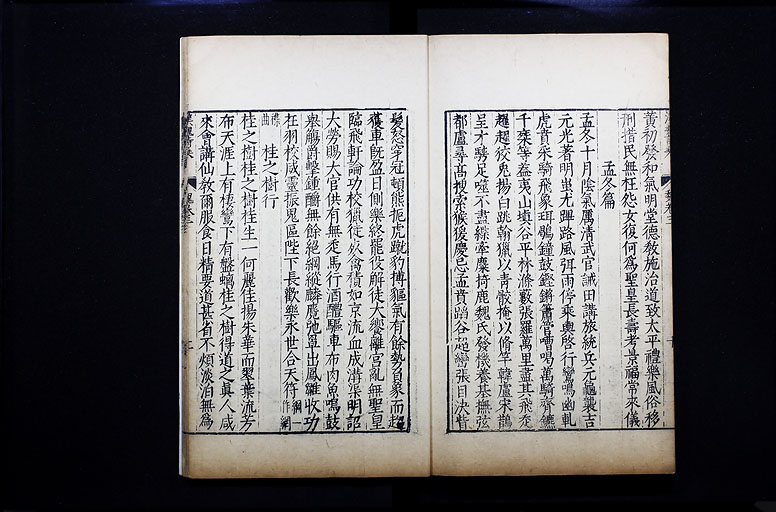 黃初發和氣明堂德教施治道致太平禮樂風俗移
刑措民無枉怨女復何為聖皇長壽考景福常來儀
孟冬篇
孟冬十月陰氣厲清武官誡田講旅統兵元龜襲吉
元光著明蚩尤蹕路風弭雨停乘輿啓行鸞鳴幽軋
虎賁采騎飛象珥鶡鐘鼓鏗鏘簫管嘈喝萬騎齊鑣
千乘等蓋夷山填谷平林滌藪張羅萬里盡其飛走
趯趯狡兔揚白跳翰獵以青骹掩以脩竿韓盧宋鵲
呈才騁足噬不盡緤牽麋掎鹿魏氏發機養基撫弦
都盧尋高搜索猴猨慶忌孟賁蹈谷超巒張目決眥
髮怒穿冠頓熊扼虎蹴豹搏貙氣有餘勢負象而趨
獲車既盈日側樂終罷役解徒大饗離宮亂無聖皇
臨飛軒論功校獵徒死禽積如京流血成溝渠明詔
大勞賜大官供有無走馬行酒醴驅車布肉魚鳴鼓
舉觴爵擊鍾釂無餘絕綱縱麟麑弛罩出鳳雛收功
在羽校威靈振鬼區陛下長歡樂永世合天符綱一作網
桂之樹行
桂之樹桂之樹桂生一何麗佳揚朱華而翠葉流芳
布天涯上有棲鸞下有盤螭桂之樹得道之真人咸
來會講仙教爾服食日精要道甚省不煩淡泊無為